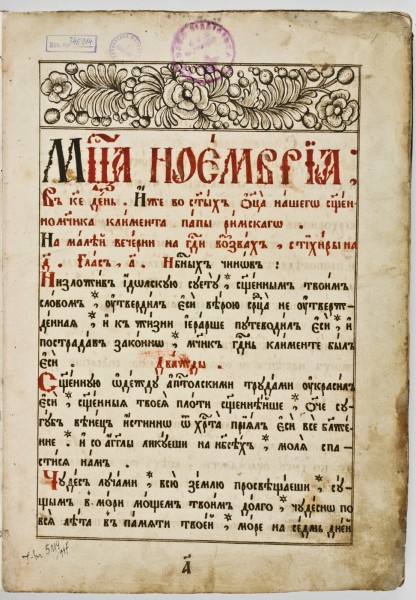 Мц҃а ноемврїа ;
Въ к҃е де́нь . И́же во ст҃ы́хъ Ѻ҆ц҃а нашегѡ сщ҃ен-
номч҃ика климента папы ри́мскагѡ .
На ма́лѣй вече́рни на гдⷭ҇и воззва́хъ , стїхи́ры на
д҃ . Гла́съ , а҃ . Нбⷭ҇ныхъ чинѡ́въ :
Низложи́въ і҆́дѡлскую суету̀ , сщ҃е́ннымъ твои́мъ
сло́вомъ , ѹ҆тверди́лъ є҆сѝ вѣ́рою срⷣца не ѹ҆твержⷣ-
де́нная , и҆ къ жи́зни і҆ера́рше путеводи́лъ є҆сѝ , и҆
пострада́въ зако́ннѡ , мч҃икъ гдⷭ҇нь клименте бы́лъ
є҆сѝ . Два́жды .
Сщ҃е́нную ѻ҆де́жду а҆пⷭ҇толскими труда́ми ѹ҆краси́лъ
є҆сѝ , сщ҃е́нныя твоея̀ пло́ти сщ҃е́ннѣйше , ѻ҆́тче су-
гу́бъ вѣне́цъ и҆́стиннѡ ѿ хрⷭ҇та̀ прїѧ́лъ є҆сѝ все бл҃же́н-
не . и҆ со а҆́гг҃лы лику́еши на нб҃сѣ́хъ , моля̀ спа-
сти́ся на́мъ .
Чуде́съ луча́ми , всю̀ зе́млю просвѣща́еши , су́-
щымъ в̾ мо́ри мо́щемъ твои́мъ до́лго , чуде́снѡ по
всѧ̑ лѣ́та в̾ па́мяти твое́й , мо́ре на се́дмь дні́й
а҃
345814
5114